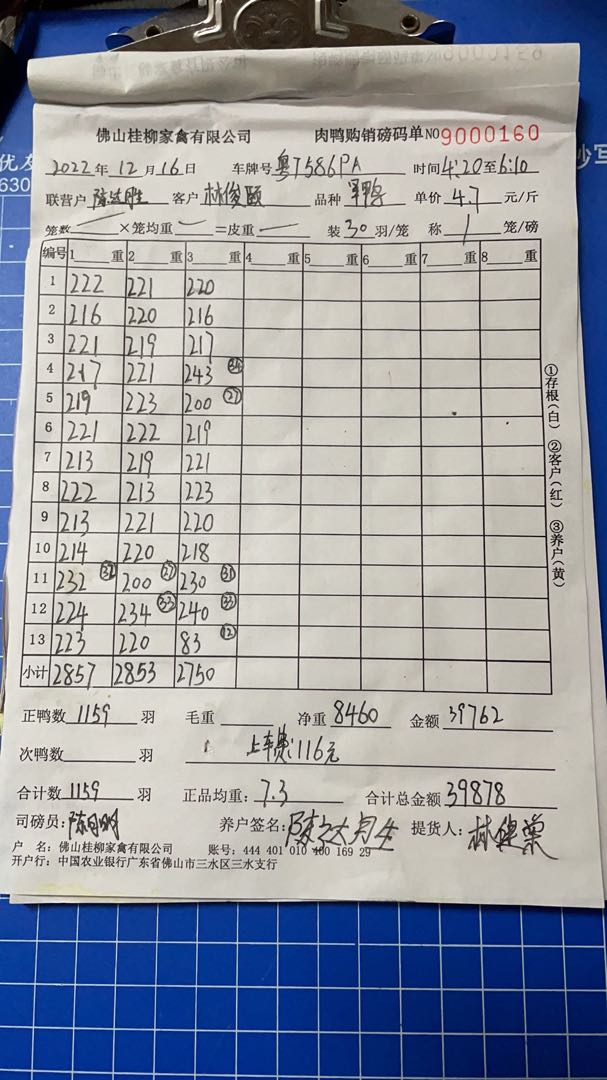 9000159
佛山桂柳家禽有限公司 肉鸭购销磅码单 NO 9000160
2022年12月16日 车牌号 粤T586PA 时间 4:20至6:10
联营户 客户 林俊颐 品种 单价 4.7 元/斤
笼数 ×笼均重 =皮重 装 30 羽/笼 称 1 笼/磅
编号 1 重 2 重 3 重 4 重 5 重 6 重 7 重 8 重
1 222 221 220
2 216 220 216
3 221 219 217
4 217 221 243 34
5 219 223 200 27
6 221 222 219
7 213 219 221
8 222 213 223
9 213 221 220
10 214 220 218
11 232 32 200 27 230 31
12 224 234 33 240 33
13 223 220 83 12
小计 2857 2853 2750
①存根(白) ②客户(红) ③养户(黄)
正鸭数 1159 羽 毛重 净重 8460 金额 39762
次鸭数 羽 上车费:116元
合计数 1159 羽 正品均重: 7.3 合计总金额 39878
司磅员: 养户签名: 提货人:
户 名: 佛山桂柳家禽有限公司 账号: 444 401 010 400 169 29
开户行: 中国农业银行广东省佛山市三水区三水支行